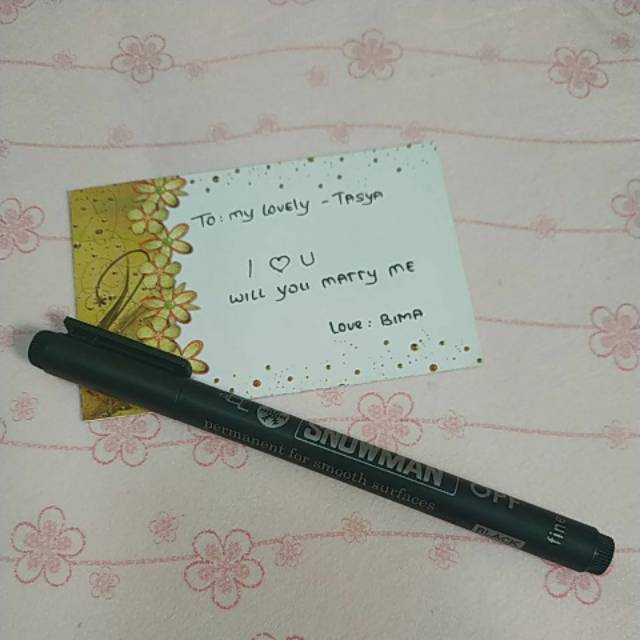 To: my Lovely - TASYA
I ♡ U
WILL you MARRY ME
Love: BIMA
SNOWMAN
OPF
permanent for smooth surfaces
BLACK
fine